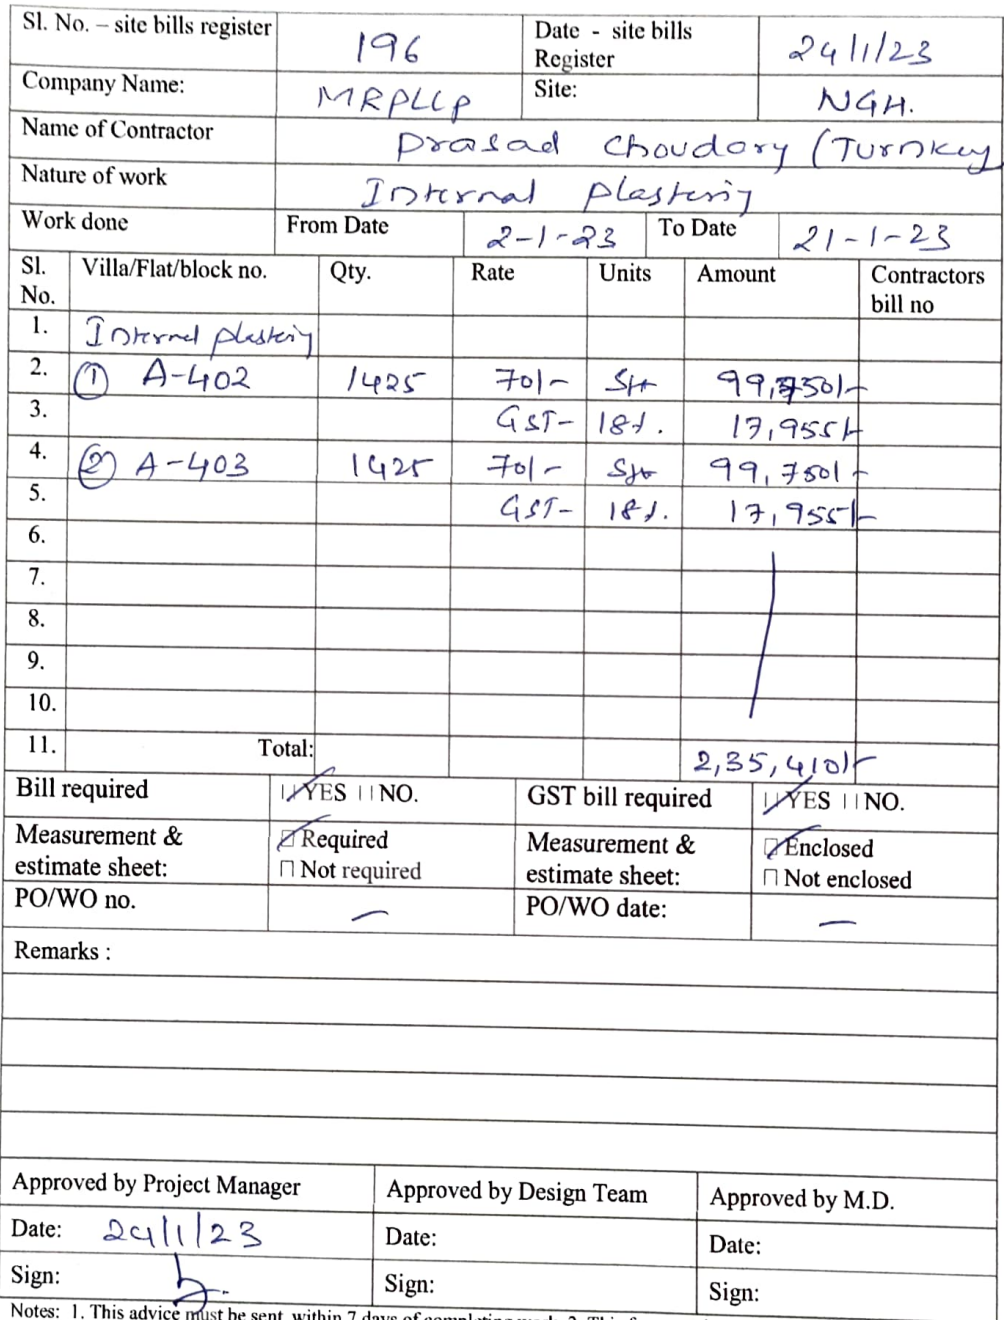 Sl. No. – site bills register 196 Date - site bills Register 24/1/23
Company Name: MRPLLP Site: NGH.
Name of Contractor Prasad Choudory (Turnkey
Nature of work Internal plastering
Work done From Date 2-1-23 To Date 21-1-23
Sl. No. Villa/Flat/block no. Qty. Rate Units Amount Contractors bill no
1. Internal plastering
2. ① A-402 1425 70/- Sft 99,750/-
3. GST- 18%. 17,955/-
4. ② A-403 1425 70/- Sft 99,750/-
5. GST- 18%. 17,955/-
6.
7.
8.
9.
10.
11. Total: 2,35,410/-
Bill required YES NO. GST bill required YES NO.
Measurement & estimate sheet: Required Measurement & estimate sheet: Enclosed
Not required Not enclosed
PO/WO no. — PO/WO date: —
Remarks :
Approved by Project Manager Approved by Design Team Approved by M.D.
Date: 24/1/23 Date: Date:
Sign: Sign: Sign:
Notes: 1. This advice must be sent within 7 days of